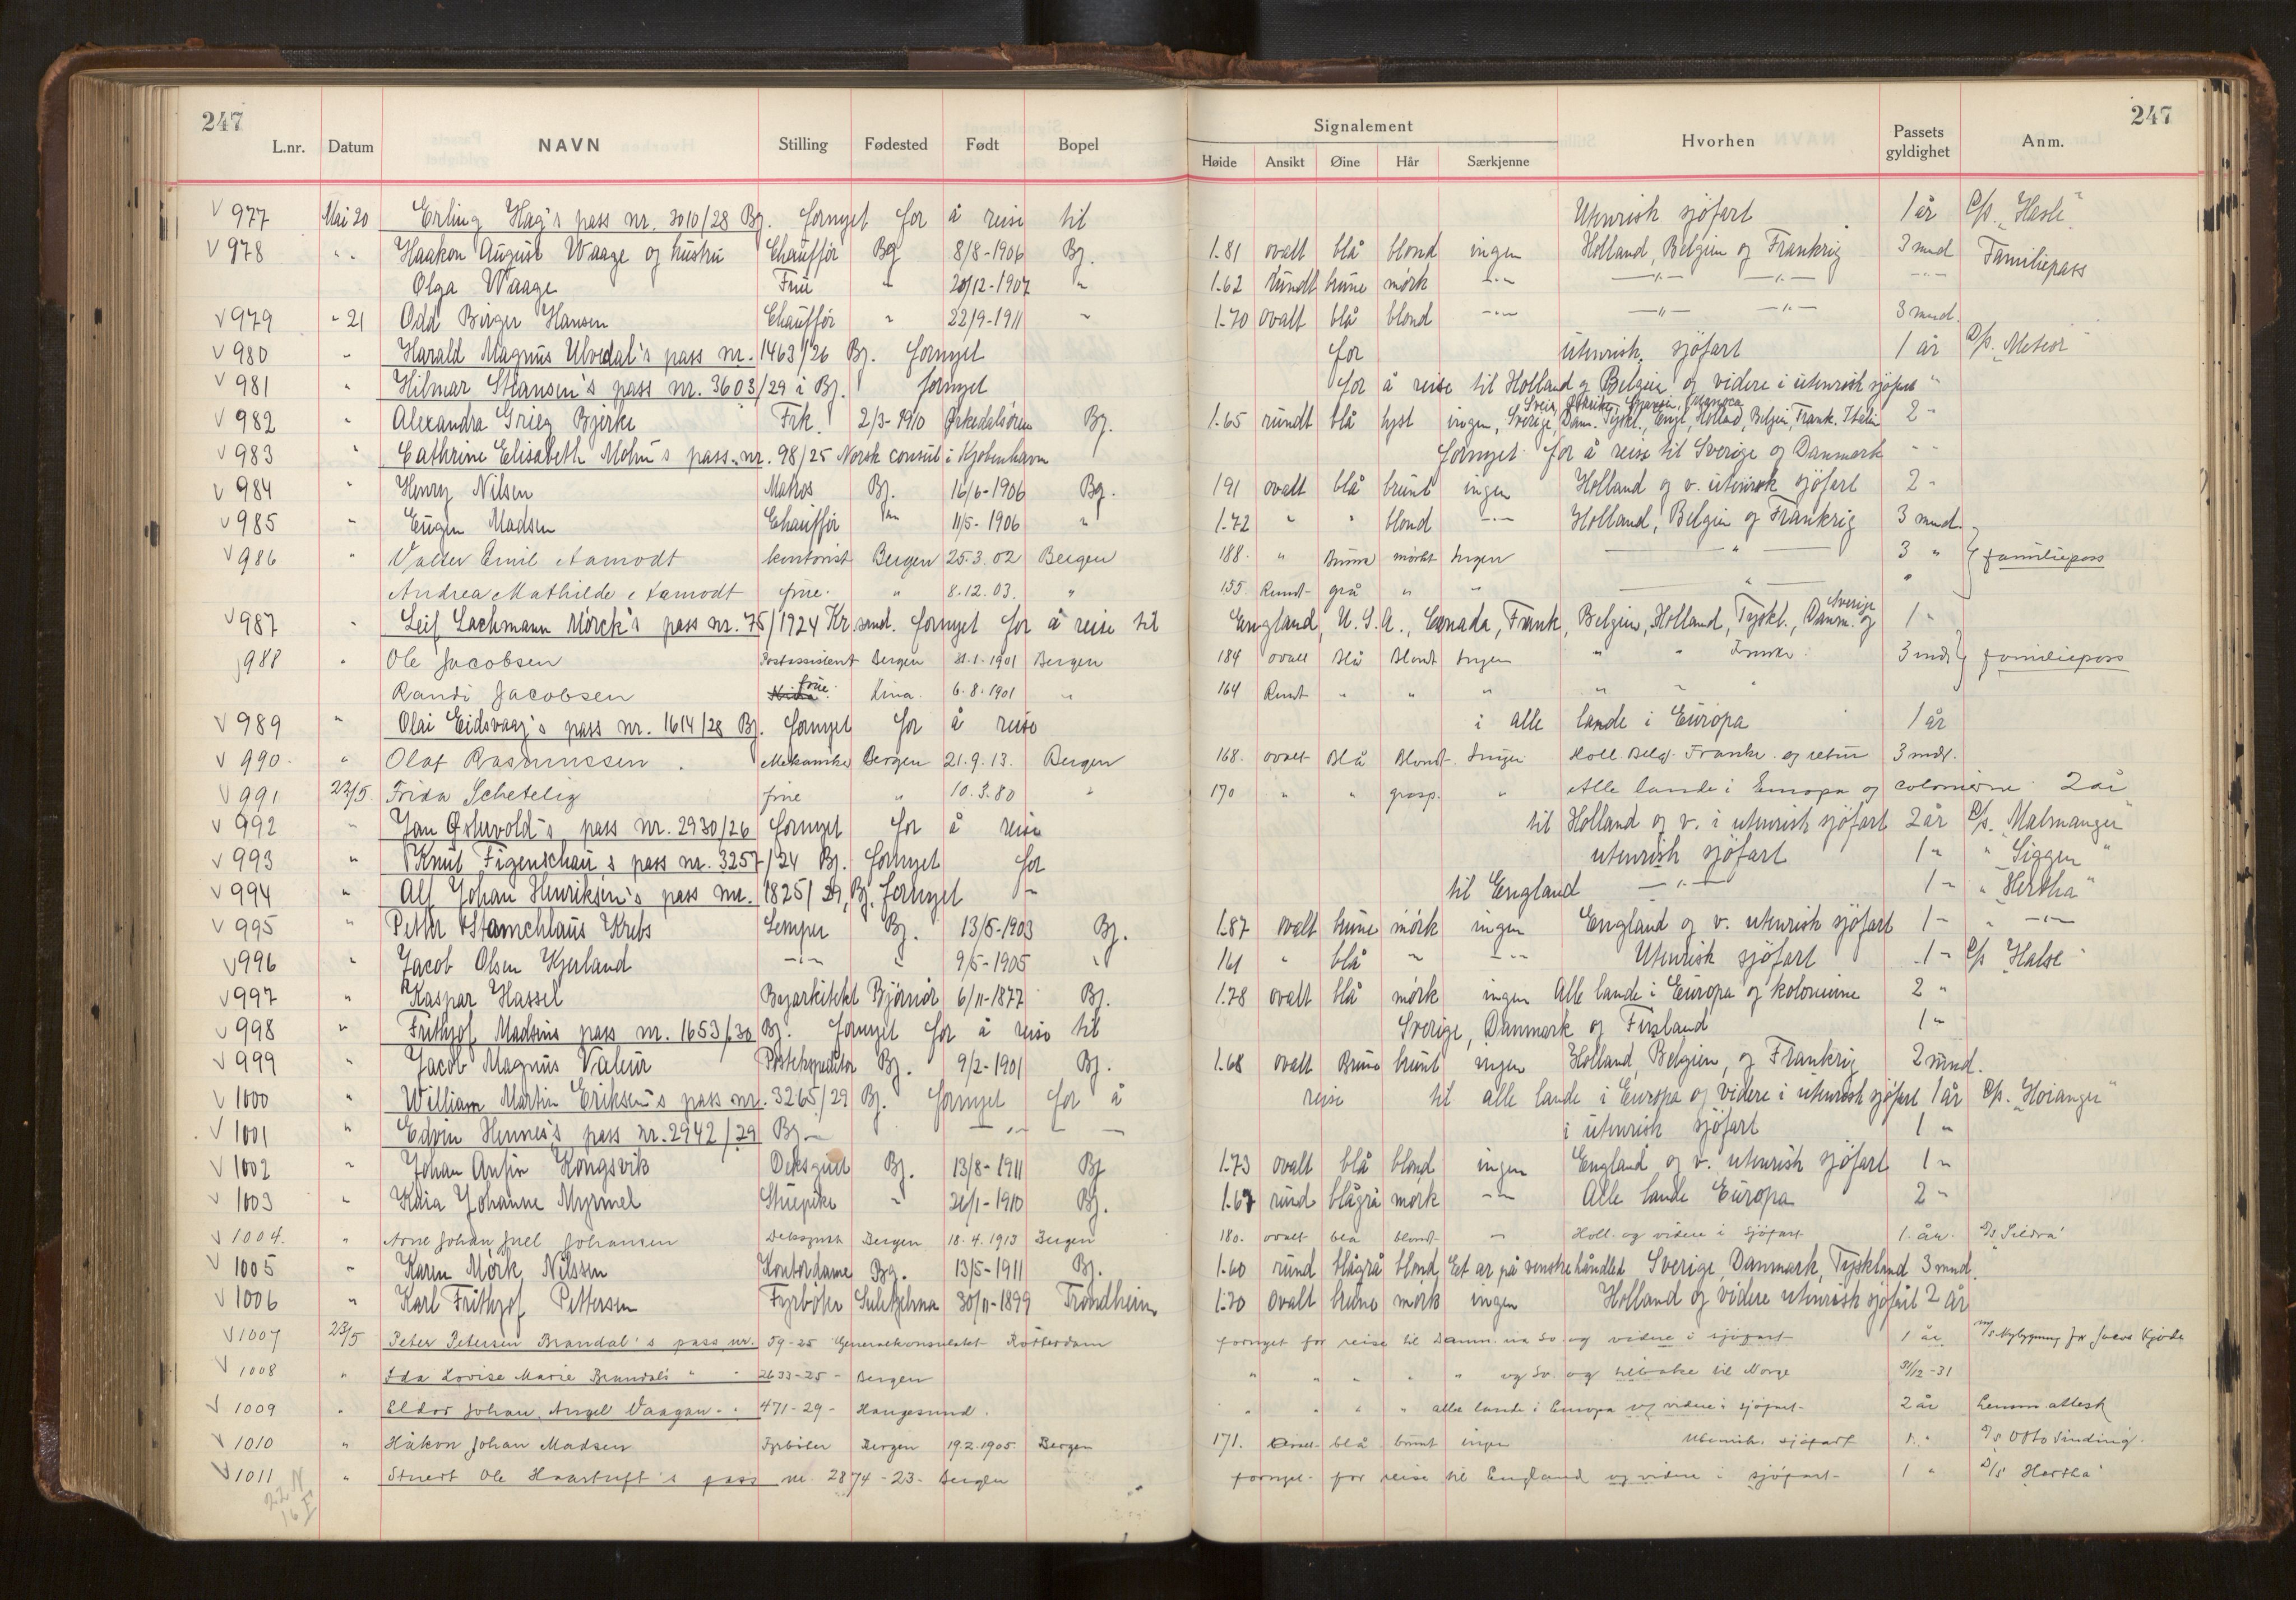 247
247
L.nr. Datum NAVN Stilling Fødested Født Bopel Signalement Høide Ansikt Øine Hår Særkjenne Hvorhen Passets gyldighet Anm.
V 977 Mai 20 Erling Hag's pass nr. 3010/28 Bg. fornyet for å reise til Utenrisk sjöfart 1 år D/s. "Hasle"
V 978 " " Haakon August Waage og hustru Chaufför Bg 8/8-1906 Bg. 1.81 ovalt blå blond ingen Holland, Belgien og Frankrig 3 mnd Familiepass
Olga Waage Frue " 20/12-1907 " 1.62 rundt brune mörk -"- -"- -"- -"-
V 979 " 21 Odd Birger Hansen Chaufför " 22/9-1911 " 1.70 ovalt blå blond -"- -"- -"- 3 mnd.
V 980 " Harald Magnus Ulvedal's pass nr. 1463/26 Bg. fornyet for utenrisk. sjöfart 1 år D/s. "Meteor"
V 981 " Hilmar Stiansen's pass nr. 3603/29 i Bg. fornyet for å reise til Holland og Belgien og videre i utenrisk sjöfart "
V 982 " Alexandra Grieg Bjerke Frk. 2/3-1910 Orkedalsören Bg. 1.65 rundt blå lyst ingen, Sverige, Danm. Tyskl., Engl, Holland, Belgien, Frank. Italien 2 "
V 983 " Cathrine Elisabeth Mohn's pass. nr. 98/25 Norsk consul i Kjöbenhavn fornyet for å reise til Sverige og Danmark " "
V 984 " Henry Nilsen Matros Bg. 16/6-1906 Bg. 191 ovalt blå brunt ingen Holland og v. utenrisk sjöfart 2 "
V 985 " Eugen Madsen Chaufför -"- 11/5-1906 " 1.72 " " blond -"- Holland, Belgien og Frankrig 3 mnd.
V 986 " Valter Emil Aamodt kontorist Bergen 25.3.02 Bergen 188. " Brune mörkt Ingen " 3 " } familiepass
Andrea Mathilde Aamodt frue. " 8.12.03. " 155 Rundt grå " " " "
V 987 " Leif Lachmann Mörck's pass nr. 75/1924 Kr.sand. fornyet for å reise til England, U.S.A., Canada, Frank, Belgien, Holland, Tyskl., Danm. og Sverige 1 "
988 " Ole Jacobsen Postassistent Bergen 21.1.1901 Bergen 184 ovalt Blå Blondt Ingen " " Franke. 3 mdr } familiepass
Randi Jacobsen frue. Kina. 6.8.1901 " 164 Rundt " " " " " "
V 989 " Olai Eidsvaag's pass nr. 1614/28 Bg. fornyet for å reise i alle lande i Europa 1 år
V 990. " Olaf Rasmussen. Mekaniker Bergen 21.9.13. Bergen 168. ovalt Blå Blondt Ingen Holl. Belg. Franke. og retur 3 mdr.
V 991 22/5. Frida Schetelig frue " 10.3.80 " 170 " " grasp. " Alle lande i Europa og colonierne 2 år
V 992 " Jan Østervold's pass nr. 2930/26 fornyet for å reise til Holland og v. i utenrisk sjöfart 2 år D/s. "Malmanger"
V 993 " Knut Figenschau's pass nr. 3257/24 Bg. fornyet for utenrisk sjöfart 1 " " "Siggen"
V 994 " Alf Johan Henriksen's pass nr. 1825/29, Bg. fornyet " til England -"- 1 " " "Hertha"
V 995 " Petter Krebs Lemper Bg. 13/5-1903 Bg. 1.87 ovalt brune mörk ingen England og v. utenrisk sjöfart 1 " " -"-
V 996 " Jacob Olsen Kjerland -"- " 9/5-1905 " 161 " blå " -"- Utenrisk sjöfart 1 " D/s "Halse"
V 997 " Kaspar Hassel Byarkitekt Björnör 6/11-1877 Bg. 1.78 ovalt blå mörk ingen Alle lande i Europa og kolonierne 2 "
V 998 " Frithjof Madsens pass nr. 1653/30 Bg. fornyet for å reise til Sverige, Danmark og Finland 1 "
V 999 " Jacob Magnus Valeur Postekspeditör Bg. 9/2-1901 Bg. 1.68 ovalt Brune brunt ingen Holland, Belgien, og Frankrig 2 mnd.
V 1000 " William Martin Eriksen's pass nr. 3265/29 Bg. fornyet for å reise til alle lande i Europa og videre i utenrisk sjöfart 1 år D/s. "Höianger"
V 1001 " Edvin Hennes's pass nr. 2942/29 Bg. -"- i utenrisk sjöfart 1 "
V 1002 " Johan Anfin Kongsvik Deksgutt Bg. 13/8-1911 Bg 1.73 ovalt blå blond ingen England og v. utenrisk sjöfart 1 "
V 1003 " Kaia Johanne Myrmel Stuepike " 26/1-1910 Bg. 1.67 rund blågrå mörk -"- Alle lande Europa 2 "
V 1004. " Arne Johan Juell Johansen Deksgutt Bergen 18.4.1913 Bergen 180. ovalt blå blondt " Holl. og videre i sjöfart 1. år. D/s "Sildra"
V 1005 " Karen Mörk Nilssen Kontordame Bg. 13/5-1911 Bg. 1.60 rund blågrå blond Et ar på venstre håndled Sverige, Danmark, Tyskland 3 mnd.
V 1006 " Karl Frithjof Pettersen Fyrböter Sulitjelma 30/11-1899 Trondheim 1.70 ovalt brune mörk ingen Holland og videre utenrisk sjöfart 2 år
V 1007 23/5 Peter Petersen Brandal's pass nr. 59-25 Generalkonsulatet Rotterdam fornyet for reise til Danm. via Sv. og videre i sjöfart 1 år M/s Nybygning for Jacob Kjøde
V 1008 " Ida Lovise Marie Brandals " " 2633-25- Bergen " " " " " og Sv. og tilbake til Norge 31/12-31
V 1009 " Eldor Johan Angel Vaagan " " 471-29- Haugesund. " " " " alle lande i Europa og videre i sjöfart 2 år
V 1010 " Håkon Johan Madsen Fyrböter Bergen 19.2.1905. Bergen 171. ovalt blå brunt ingen Utenriks. sjöfart 1. " D/s Otto Sinding.
V 1011 " Stuert Ole Haartuft's pass nr. 2874-23- Bergen fornyet for reise til England og videre i sjöfart 1 " D/s "Hertha"
22 N
16 F